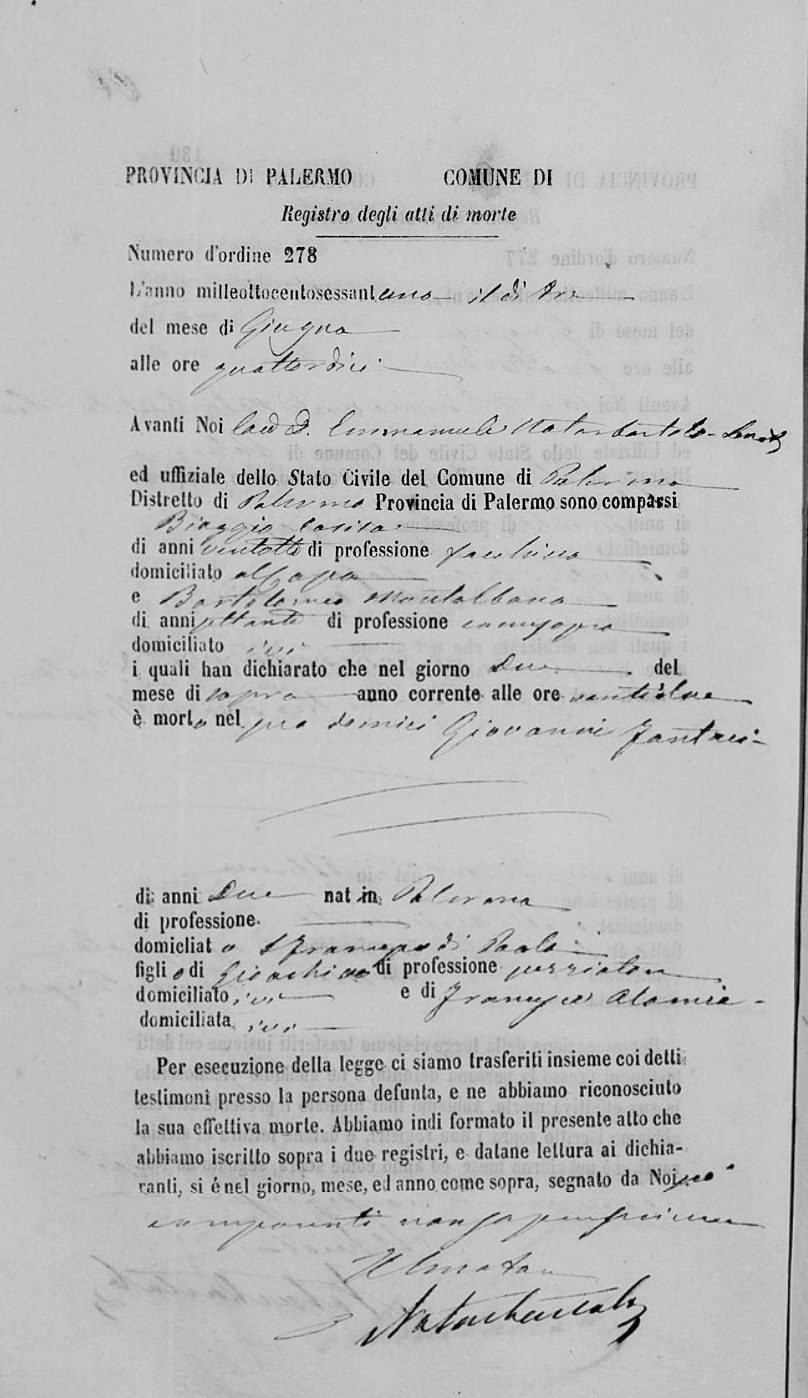 PROVINCIA DI PALERMO COMUNE DI
Registro degli atti di morte
Numero d'ordine 278
L'anno milleottocentosessantuno il dì tre
del mese di Giugno
alle ore quattordici
Avanti Noi D. Emmanuele Notarbartolo
ed uffiziale dello Stato Civile del Comune di Palermo
Distretto di Palermo Provincia di Palermo sono comparsi
Biaggio
di anni ventotto di professione
domiciliato
e Bartolomeo Montalbano
di anni ottanta di professione come sopra
domiciliato ivi
i quali han dichiarato che nel giorno Due del
mese di sopra anno corrente alle ore ventidue
è morto nel suo domici Giovanni Fantaci
di anni Due nat in Palermo
di professione
domicliato S Francesco di Paola
figlio di Gioachino di professione
domiciliato ivi e di Francesca
domiciliata ivi
Per esecuzione della legge ci siamo trasferiti insieme coi detti
testimoni presso la persona defunta, e ne abbiamo riconosciuto
la sua effettiva morte. Abbiamo indi formato il presente atto che
abbiamo iscritto sopra i due registri, e datane lettura ai dichia-
ranti, si é nel giorno, mese, ed anno come sopra, segnato da Noi
comparenti non sapendo
Notarbartolo